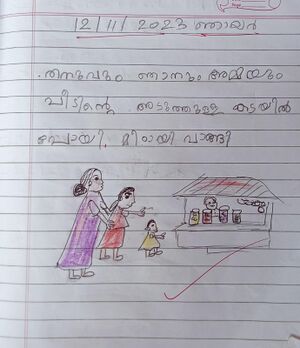 12/11/2023 ഞായർ
തനുവും ഞാനും അമ്മിയും
വീടിന്റെ അടുത്തുള്ള കടയിൽ
പോയി. മിഠായി വാങ്ങി